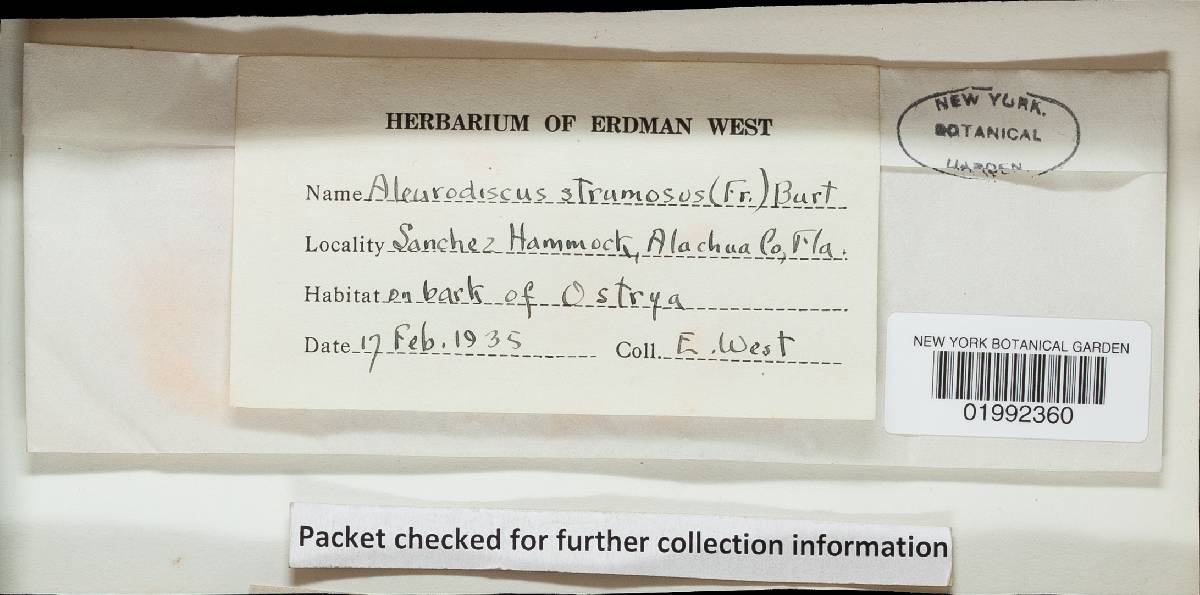 HERBARIUM OF ERDMAN WEST
Name Aleurodiscus strumosus (Fr.) Burt
Locality Sanchez Hammock, Alachua Co, Fla.
Habitat on bark of Ostrya
Date 17 Feb. 1935 Coll. E. West
NEW YORK
BOTANICAL
GARDEN
NEW YORK BOTANICAL GARDEN
01992360
Packet checked for further collection information